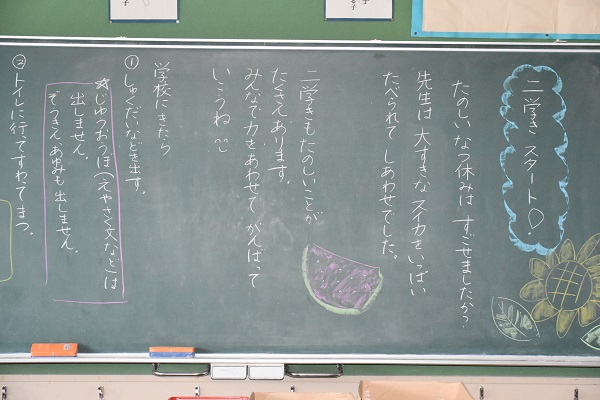 二学き スタート!
たのしいなつ休みは すごせましたか?
先生は 大すきな スイカを いっぱい
たべられて しあわせでした。
二学きも たのしいことが
たくさんあります。
みんなで 力をあわせて がんばって
いこうね
学校にきたら
① しゅくだいなどを出す。
☆じゆうおうぼ(えやさく文など)は
出しません。
ぞうきん あゆみも 出しません。
② トイレに行って すわってまつ。